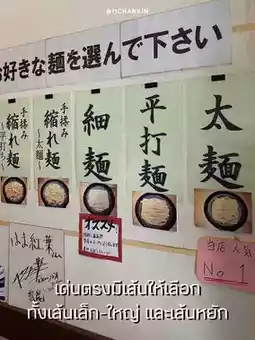 @TICHANKIN
お好きな麺を選んで下さい
手揉み
縮れ麺
～平打ち～
手揉み
縮れ麺
～太麺～
細麺
平打麺
太麺
オススメ
当店人気
No 1
เด่นตรงมีเส้นให้เลือก
ทั้งเส้นเล็ก-ใหญ่ และเส้นหยัก